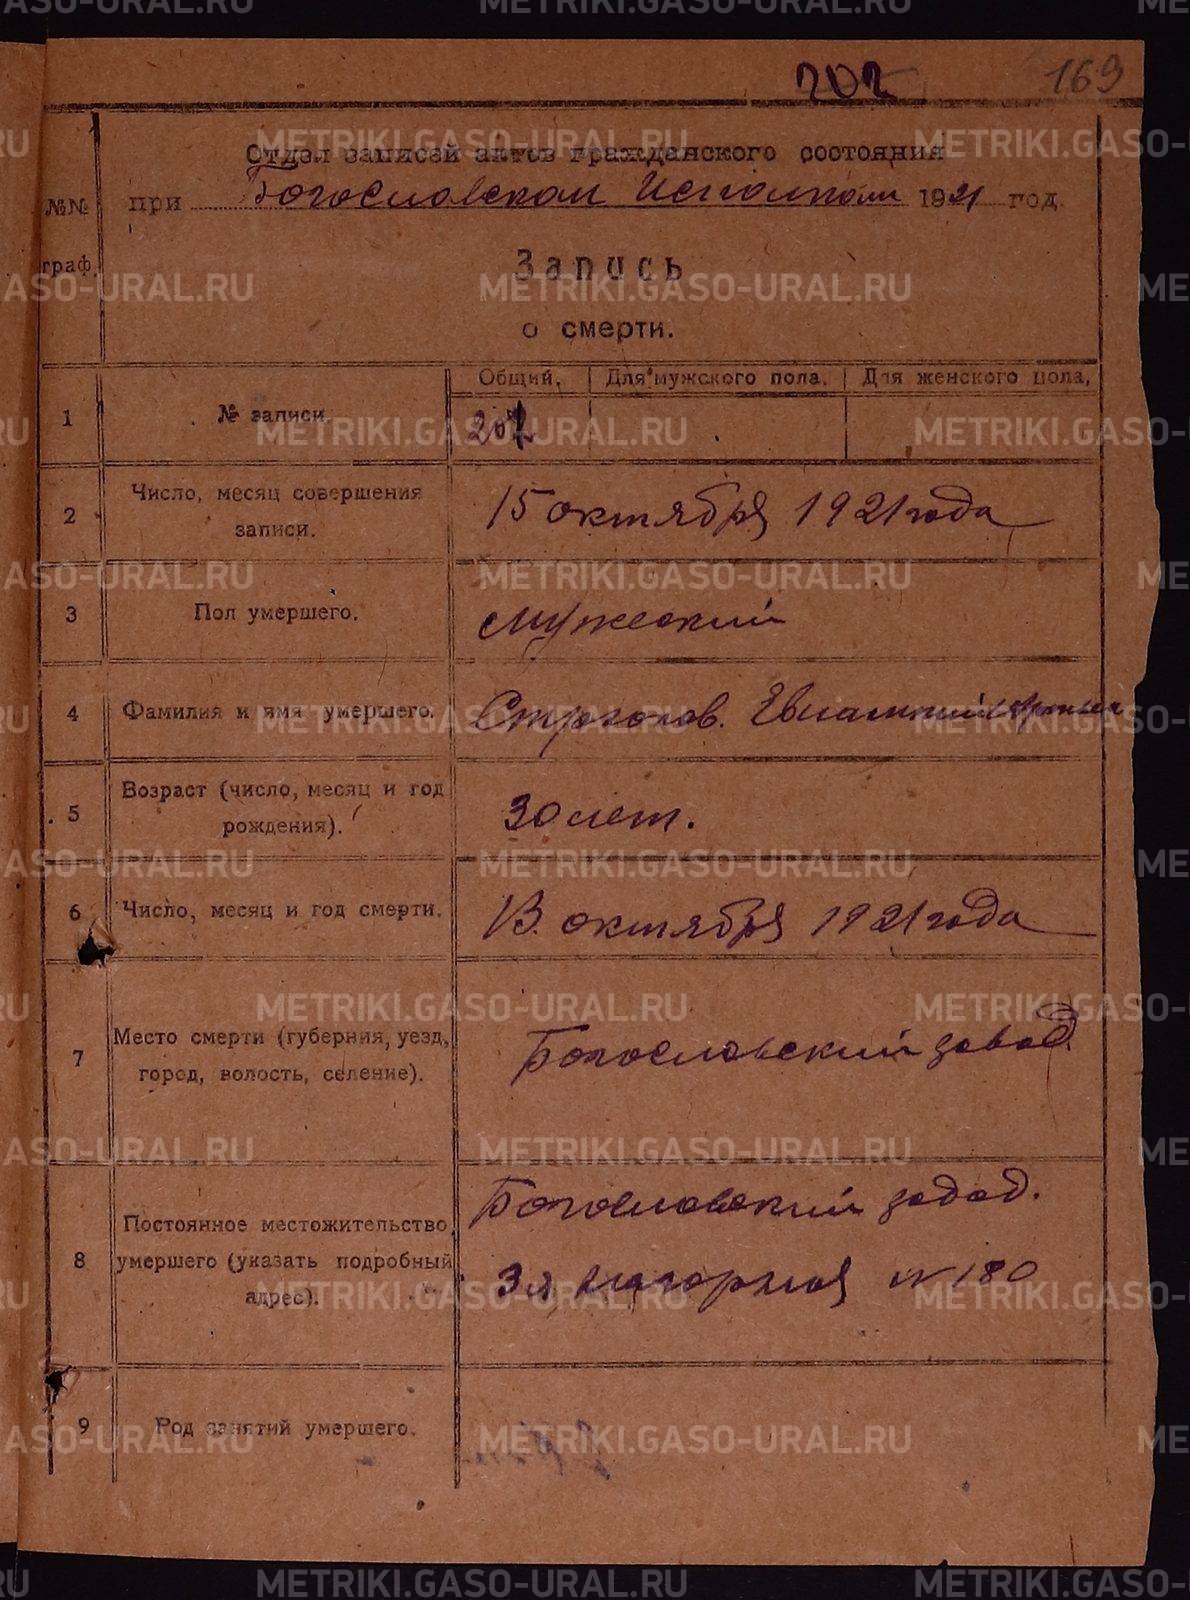 202 169
Отдел записей актов гражданского состояния
№№ при Богословском Исполком 1921 год.
граф.
Запись
о смерти.
Общий. Для мужского пола. Для женского пола.
1 № записи. 202
2 Число, месяц совершения
записи.
15 октября 1921 года
3 Пол умершего. мужеский
4 Фамилия и имя умершего. Евлампий
5 Возраст (число, месяц и год
рождения).
30 лет.
6 Число, месяц и год смерти. 13. октября 1921 года
7 Место смерти (губерния, уезд,
город, волость, селение).
Богословский завод
8 Постоянное местожительство
умершего (указать подробный
адрес).
Богословский завод.
3я Нагорная № 180
9 Род занятий умершего.
METRIKI.GASO-URAL.RU